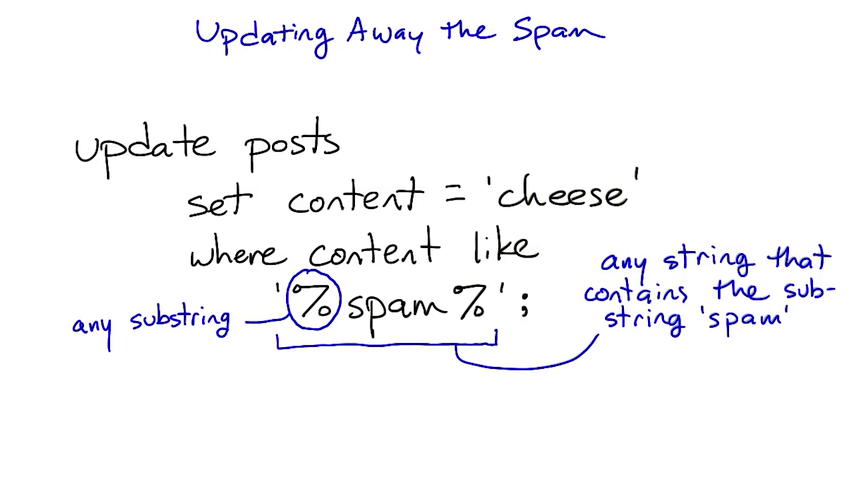 Updating Away the Spam
update posts
set content = 'cheese'
where content like
'%spam%';
any substring
any string that
contains the sub-
string 'spam'